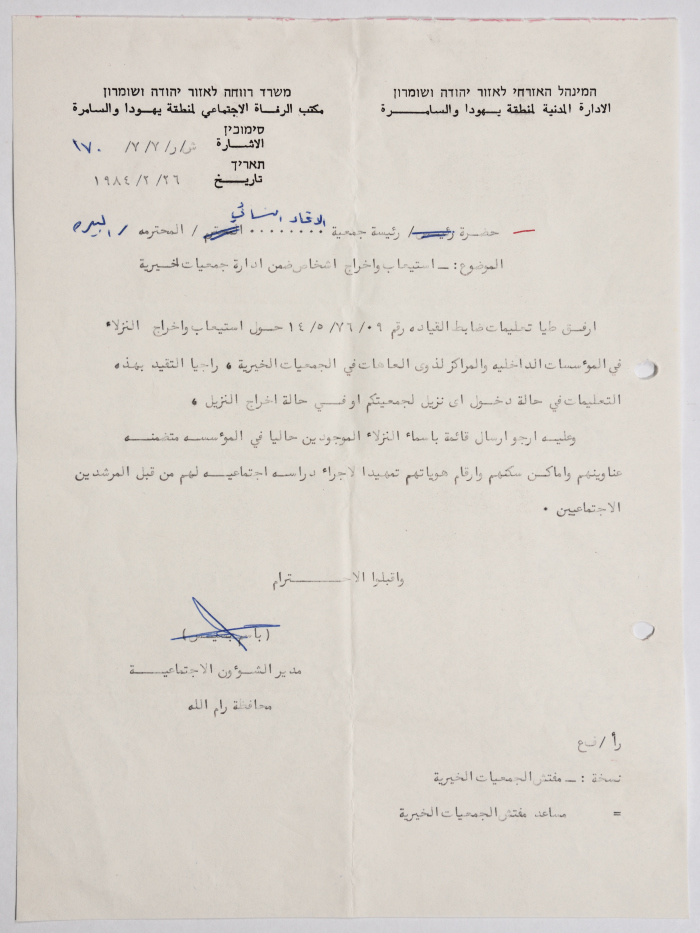 המינהל האזרחי לאזור יהודה ושומרון
الادارة المدنية لمنطقة يهودا والسامـــــرة
משרד רווחה לאזור יהודה ושומרון
مكتب الرفاة الاجتماعي لمنطقة يهودا والسامرة
סימוכין
الاشـارة ش/ر/٧/٢/ ١٧٠
תאריך
تاريـخ ١٩٨٤/٢/٢٦
الاتحاد النسائي
حضرة رئيس/ رئيسة جمعية ........ المحترم / المحترمه / البيره
الموضوع: ــ استيعاب واخراج اشخاص ضمن ادارة جمعيات لخيرية
ارفـق طيا تعليمات ضابط القياده رقم ١٤/٥/٧٦/٠٩ حـول استيعاب واخراج النزلاء
في المؤسسات الداخليه والمراكز لذوى العاهات في الجمعيات الخيرية ، راجيا التقيد بهـذه
التعليمات في حالة دخـول اى نزيل لجمعيتكم او فـي حالة اخراج النزيل ،
وعليـه ارجو ارسال قائمة باسماء النزلاء الموجودين حاليا في المؤسسـه متضمنـه
عناوينهم واماكـن سكنهم وارقام هوياتهم تمهيدا لاجراء دراسـه اجتماعيـه لهم من قبل المرشدين
الاجتماعيين .
واقبلـوا الاحــــــترام
مدير الشـؤون الاجتماعيــة
محافظة رام الله
را / فع
نسخة : ــ مفتش الجمعيات الخيرية
= مساعد مفتش الجمعيات الخيرية